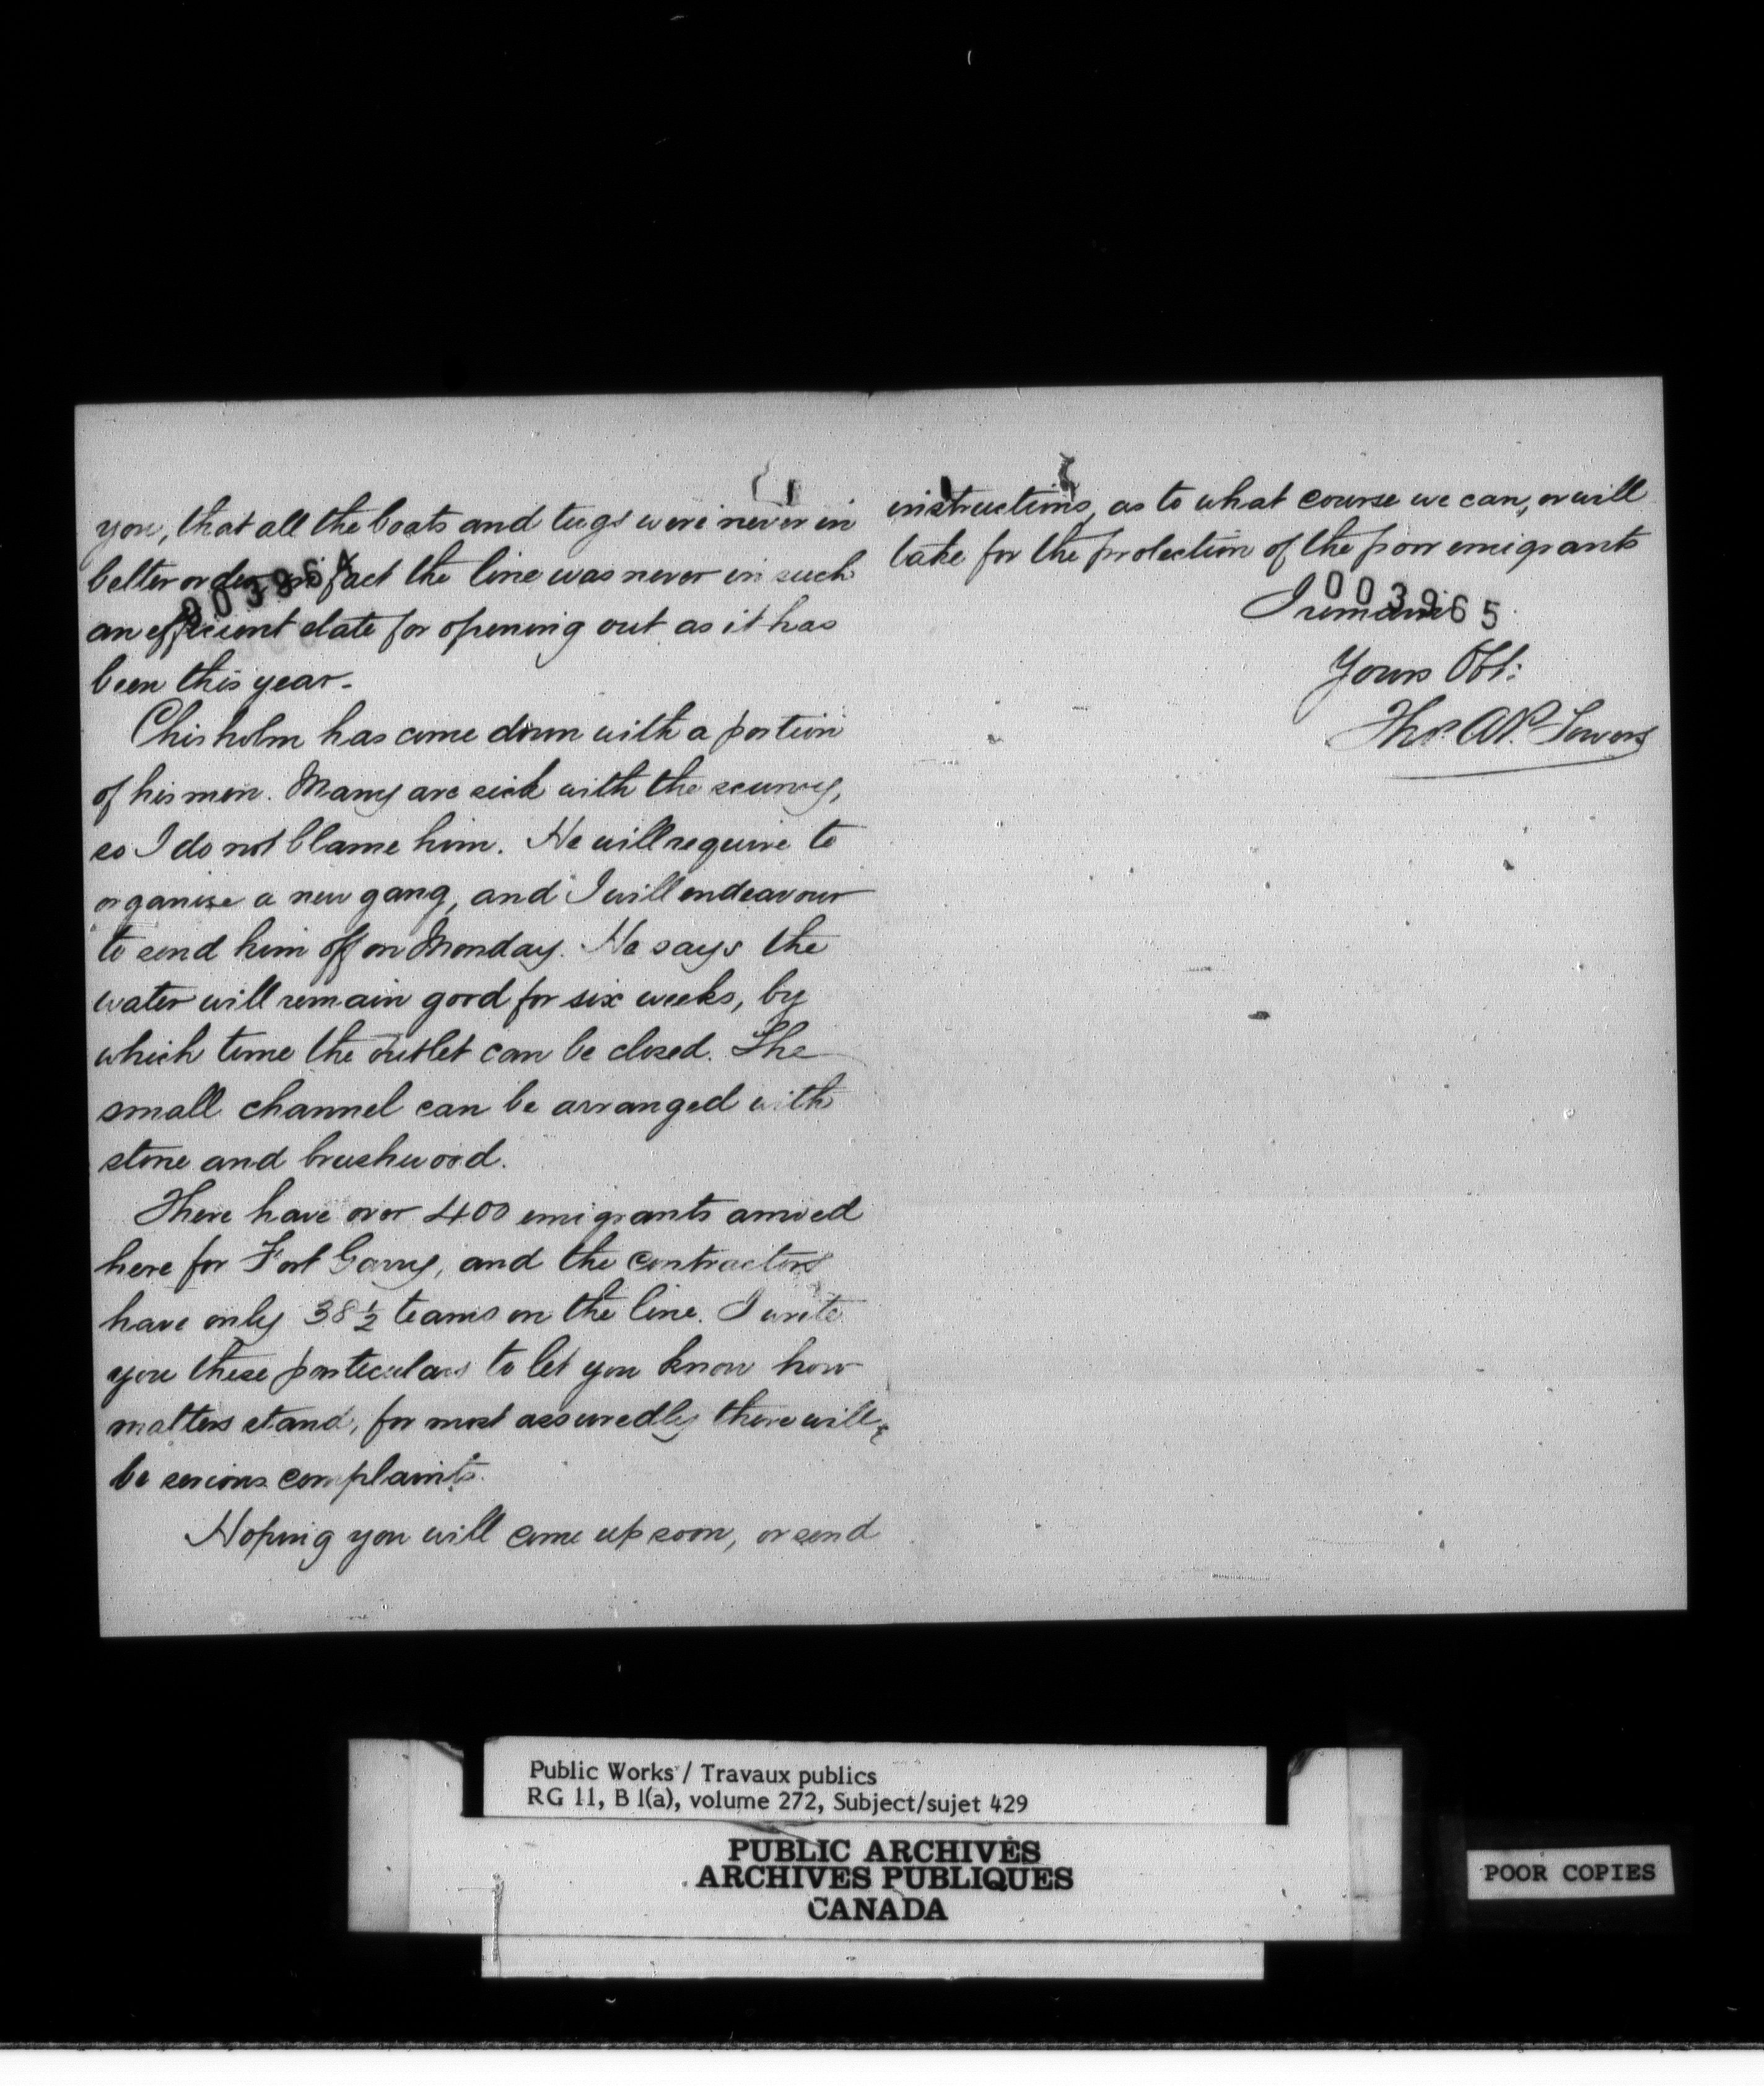 you, that all the boats and tugs were never in
better order, in fact the line was never in such
003964
an efficient state for opening out as it has
been this year.
Chisholm has come down with a portion
of his men. Many are sick with the scurvy,
so I do not blame him. He will require to
organise a new gang, and I will endeavour
to send him off on Monday. He says the
water will remain good for six weeks, by
which time the outlet can be closed. The
small channel can be arranged with
stone and brushwood.
There have over 400 emigrants arrived
here for Fort Garry, and the contractors
have only 38½ teams on the line. I write
you these particulars to let you know how
matters stand, for most assuredly there will
be serious complaints.
Hoping you will come up soon, or send
instructions, as to what course we can, or will
take for the protection of the poor emigrants
003965
I remain
Yours Obt:
Thos. A.P. Towers
Public Works / Travaux publics
RG 11, B 1(a), volume 272, Subject/sujet 429
PUBLIC ARCHIVES
ARCHIVES PUBLIQUES
CANADA
POOR COPIES